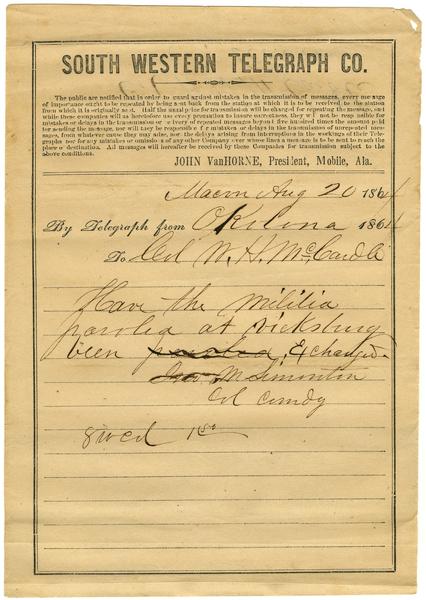 SOUTH WESTERN TELEGRAPH CO.
The public are notified that in order to guard against mistakes in the transmission of messages, every message
of importance ought to be repeated by being sent back from the station at which it is to be received to the station
from which it is originally sent. Half the usual price for transmission will be charged for repeating the message, and
while these companies will as heretofore use every precaution to insure correctness, they will not be responsible for
mistakes or delays in the transmission or delivery of repeated messages beyond five hundred times the amount paid
for sending the message, nor will they be responsible for mistakes or delays in the transmission of unrepeated mes-
sages, from whatever cause they may arise, nor for delays arising from interruptions in the workings of their Tele-
graphs nor for any mistakes or omissions of any other Company over whose lines a message is to be sent to reach the
place of destination. All messages will hereafter be received by these Companies for transmission subject to the
above conditions.
JOHN VanHORNE, President, Mobile, Ala.
Macon Aug 20 1864
By Telegraph from Okolona 1864
To Col W. H. McCardle
Have the militia
paroled at Vicksburg
been paroled, Exchanged
Jno M Simonton
Col Comdg
8